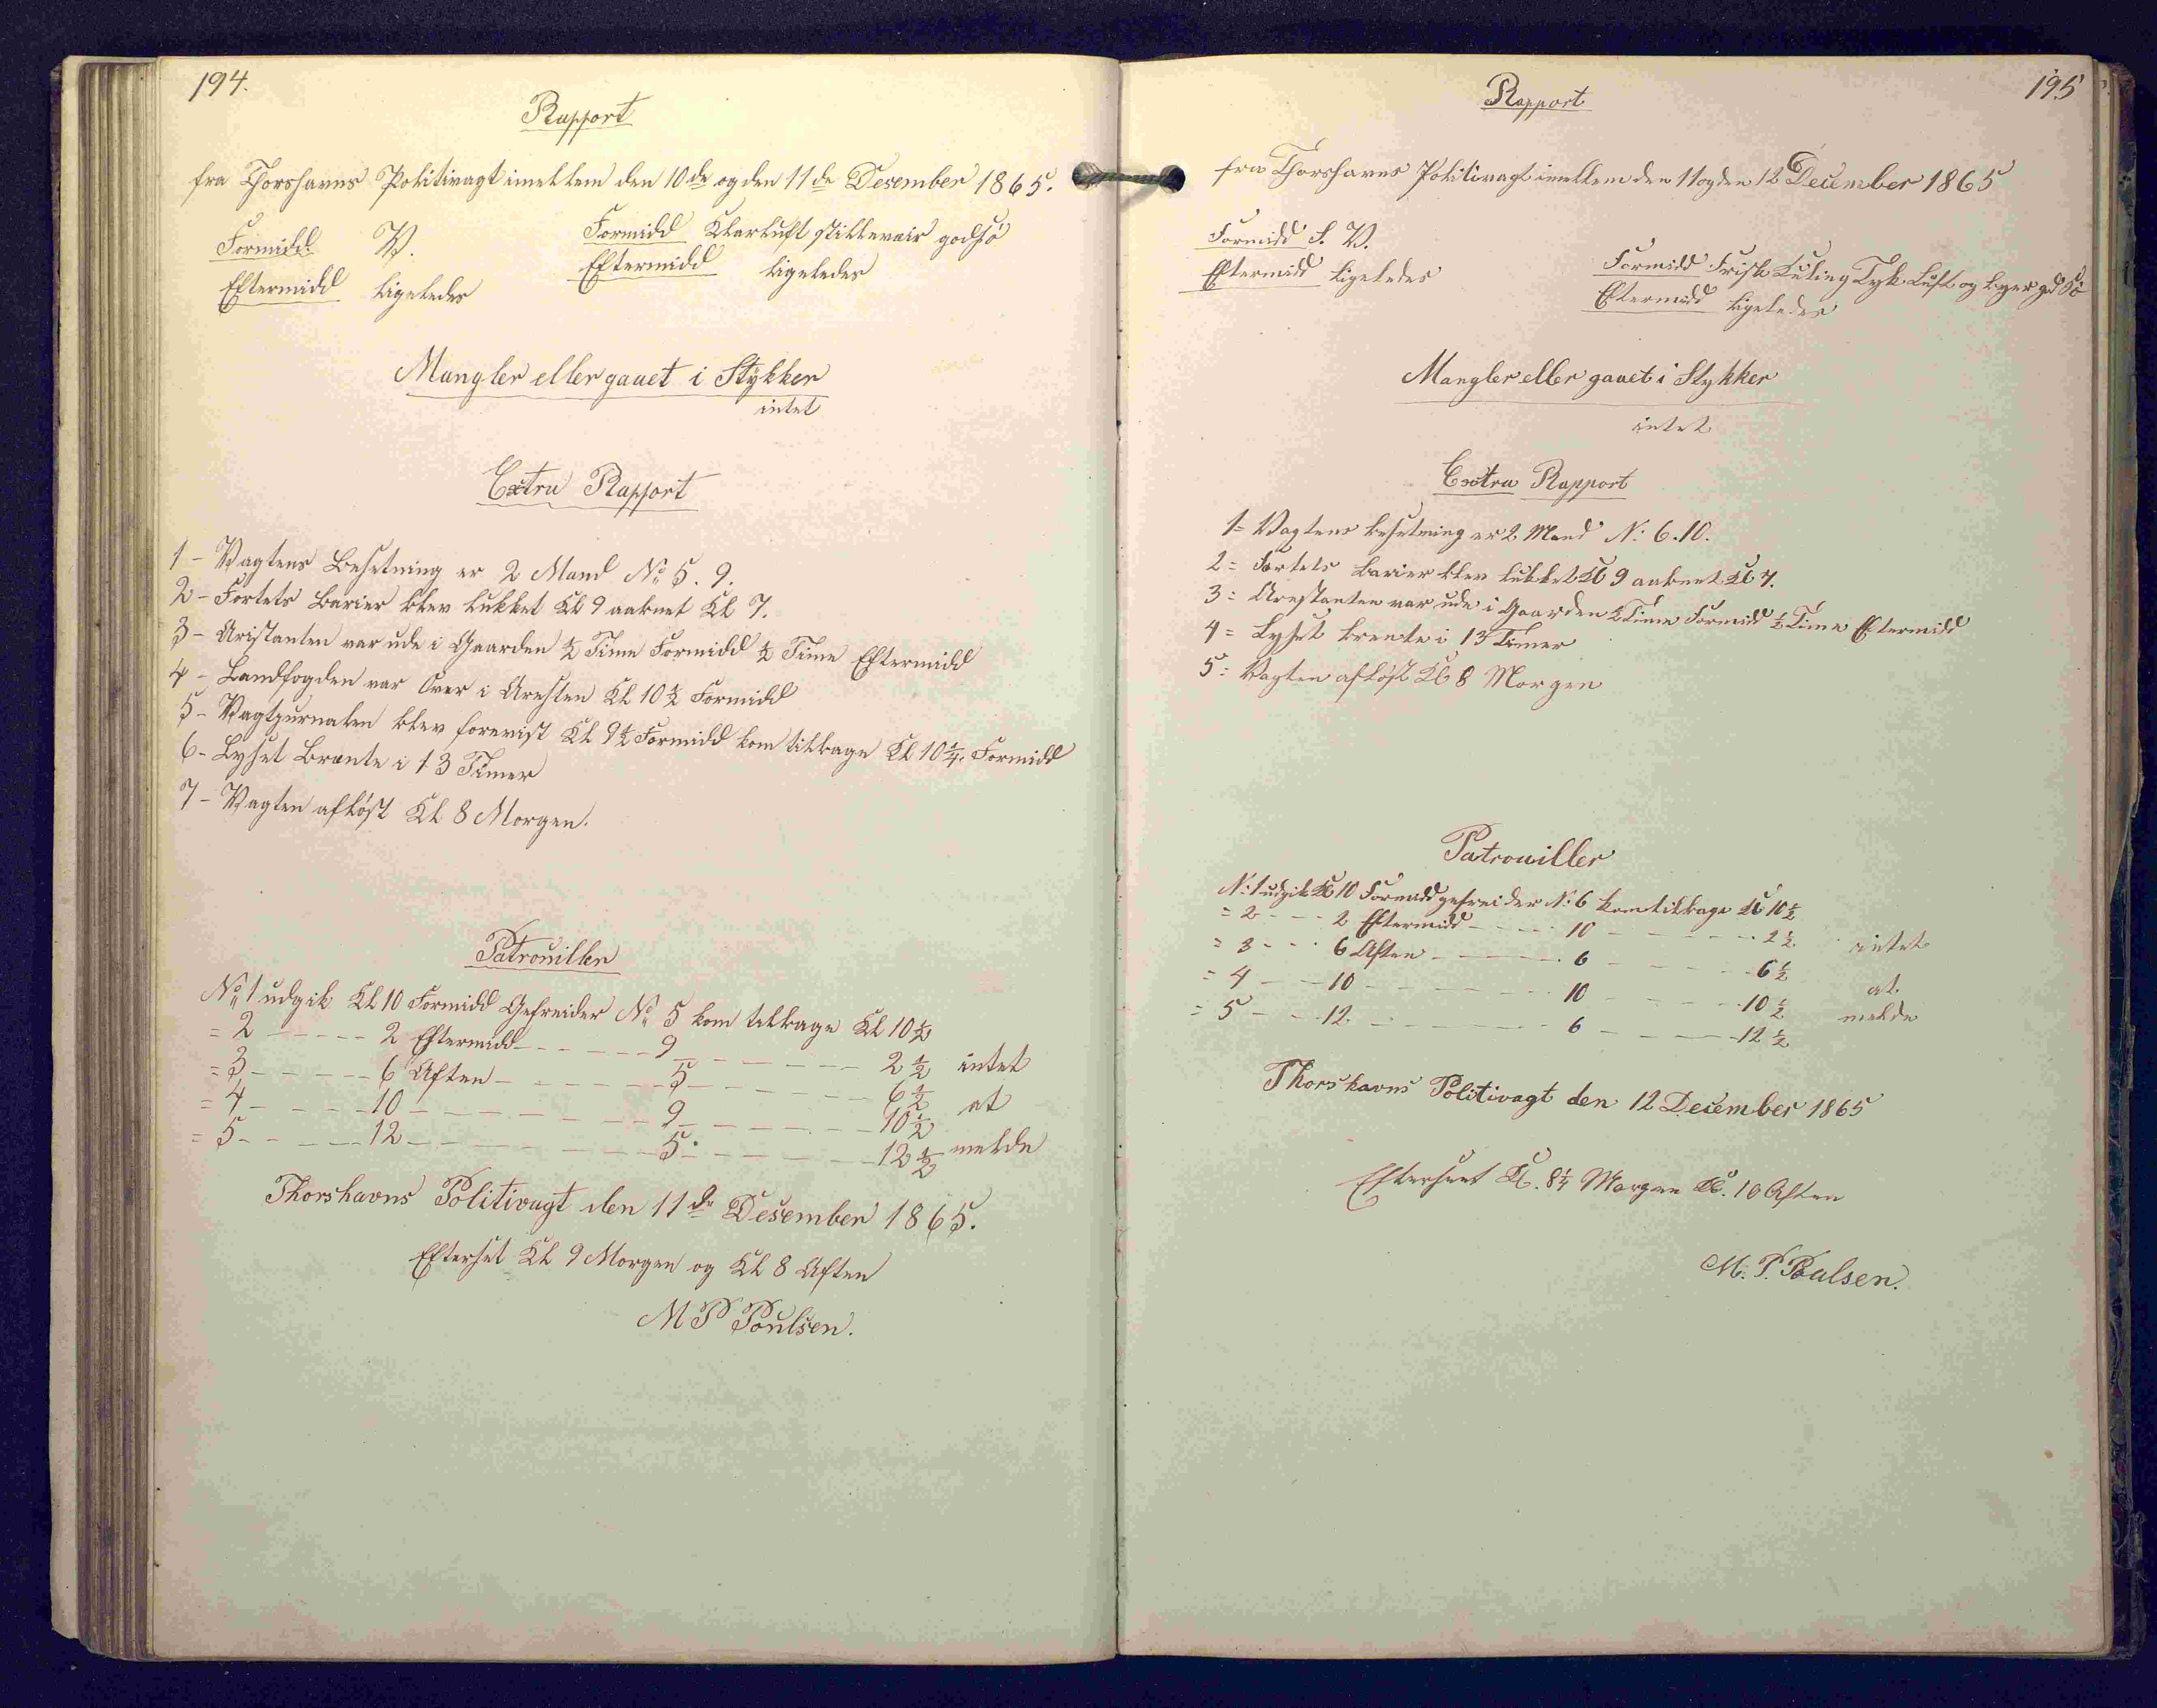 194.
Rapport
fra Thorshavns Politivagt imellem den 10de og den 11de Desember 1865.
Formidd V. Formidd Klarluft stillevair godsø
Eftermidd ligeledes Eftermidd ligeledes
Mangler eller gauet i Stykker
intet
Extra Rapport
1 - Vagtens Besetning er 2 Mand No 5. 9.
2 - Fortets Barier blev lukket Kl 9 aabnet Kl 7.
3 - Aristanten var ude i Gaarden ½ Time Formidd ½ Time Eftermidd
4 - Landfogden var Over i Aresten Kl 10½ Formidd
5 - Vagtjurnalen blev forevist Kl 9½ Formidd kom tilbage Kl 10¼ Formidd
6 - Lyset Brænte i 13 Timer
7 - Vagten afløst Kl 8 Morgen.
Patrouiller
No 1 udgik Kl 10 Formidd Gefreider No 5 kom tilbage Kl 10½
= 2 - - - - - 2 Eftermidd - - - - - 9 - - - - - 2½ intet
= 3 - - - - - 6 Aften - - - - - 5 - - - - - 6½ at
= 4 - - - - - 10 - - - - - 9 - - - - - 10½
= 5 - - - - - 12 - - - - - 5 - - - - - 12½ melde
Thorshavns Politivagt den 11de Desember 1865.
Efterset Kl 9 Morgen og Kl 8 Aften
M P Poulsen.
195
Rapport
fra Thorshavns Politivagt imellem den 11 og den 12 December 1865
Formidd S. V. Formidd Frisk Kuling Tyk Luft og byer gd Sø
Eftermidd ligeledes Eftermidd ligeledes
Mangler eller gauet i Stykker
intet
Extra Rapport
1 = Vagtens besetning er 2 Mand N: 6. 10.
2 = Fortets Barier blev lukket Kl 9 aabnet Kl 7.
3 = Arestanten var ude i Gaarden ½ Time Formidd ½ Time Eftermidd
4 = Lyset brente i 13 Timer
5 = Vagten afløst Kl 8 Morgen
Patrouiller
N: 1 udgik Kl 10 Formidd gefreider N: 6 kom tilbage Kl 10½
= 2 - - - 2 Eftermidd - - - - 10 - - - - - 2½ intet
= 3 - - - 6 Aften - - - - 6 - - - - - 6½
= 4 - - - 10 - - - - 10 - - - - - 10½ at
= 5 - - - 12 - - - - 6 - - - - - 12½ melde
Thorshavns Politivagt den 12 December 1865
Efterseet Kl. 8¼ Morgen Kl. 10 Aften
M. P. Poulsen.